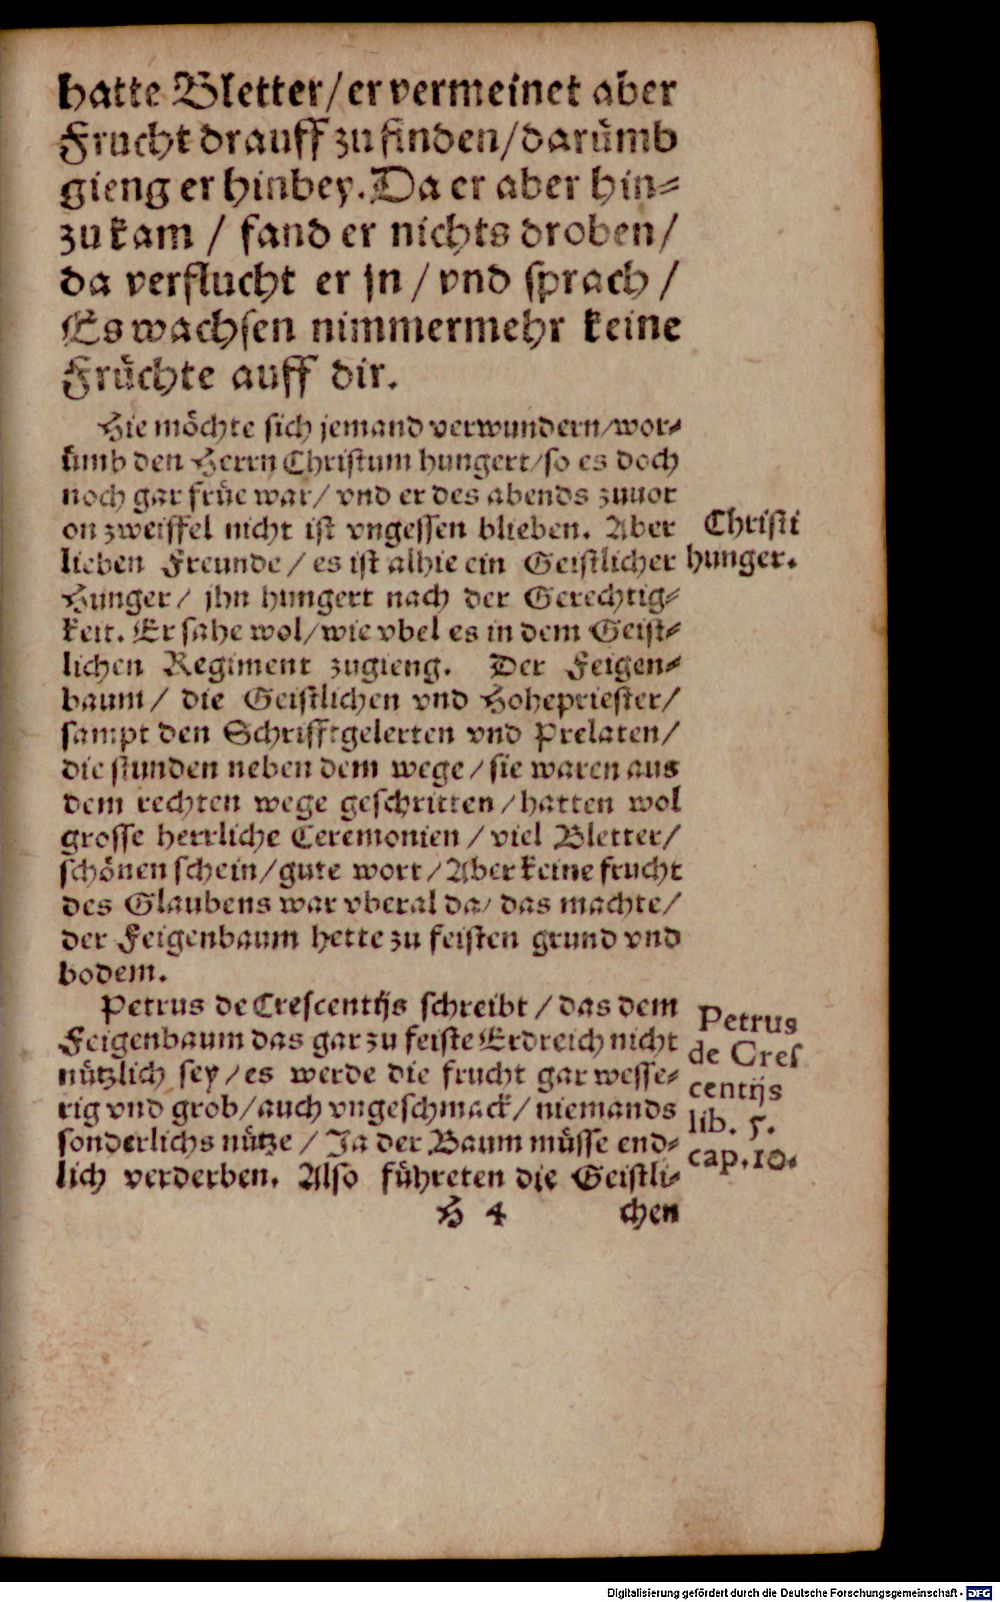 hatte Bletter/er vermeinet aber
Frucht drauff zu finden/darümb
gieng er hinbey. Da er aber hin⸗
zu kam / fand er nichts droben/
da verflucht er jn / vnd sprach /
Es wachsen nimmermehr keine
Früchte auff dir.
Hie möchte sich jemand verwundern/wor⸗
ümb den Herrn Christum hungert/so es doch
noch gar früe war/ vnd er des abends zuuor
on zweiffel nicht ist vngessen blieben. Aber
lieben Freunde / es ist alhie ein Geistlicher
Christi
hunger.
Hunger/ jhn hungert nach der Gerechtig⸗
keit. Er sahe wol/wie vbel es in dem Geist⸗
lichen Regiment zugieng. Der Feigen⸗
baum/ die Geistlichen vnd Hohepriester/
sampt den Schrifftgelerten vnd Prelaten/
die stunden neben dem wege / sie waren aus
dem rechten wege geschritten / hatten wol
grosse herrliche Ceremonien / viel Bletter/
schönen schein/gute wort/Aber keine frucht
des Glaubens war vberal da/ das machte/
der Feigenbaum hette zu feisten grund vnd
bodem.
Petrus de Crescentijs schreibt / das dem
Feigenbaum das gar zu feiste Erdreich nicht
nützlich sey/es werde die frucht gar wesse⸗
rig vnd grob/auch vngeschmack/ niemands
sonderlichs nütze / Ja der Baum müsse end⸗
lich verderben. Also führeten die Geistli⸗
Petrus
de Cres
centijs
lib. 5.
cap.10.
H 4 chen
Digitalisierung gefördert durch die Deutsche Forschungsgemeinschaft - DFG